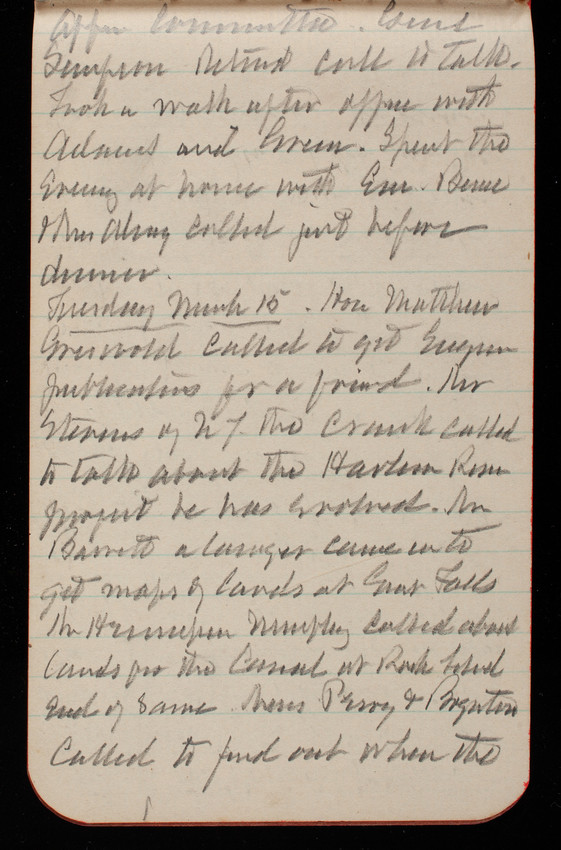 Committee. Genl
Simpson Retired call to talk.
Took a walk after office with
Adams and Green. Spent the
Evening at home with Em. Bessie
& Mrs called just before
dinner.
Tuesday March 15. Hon Matthew
Griswold called to get Engin
publications for a friend. Mr
Stevens of N.Y. the crank called
to talk about the Harlem River
project he has evolved. Mr
Barrett a lawyer came in to
get maps of lands at Great Falls
Mr Hennepin Murphy called about
lands for the Canal at Rock Island
End of same. Messrs Perry & Boynton
Called to find out when the